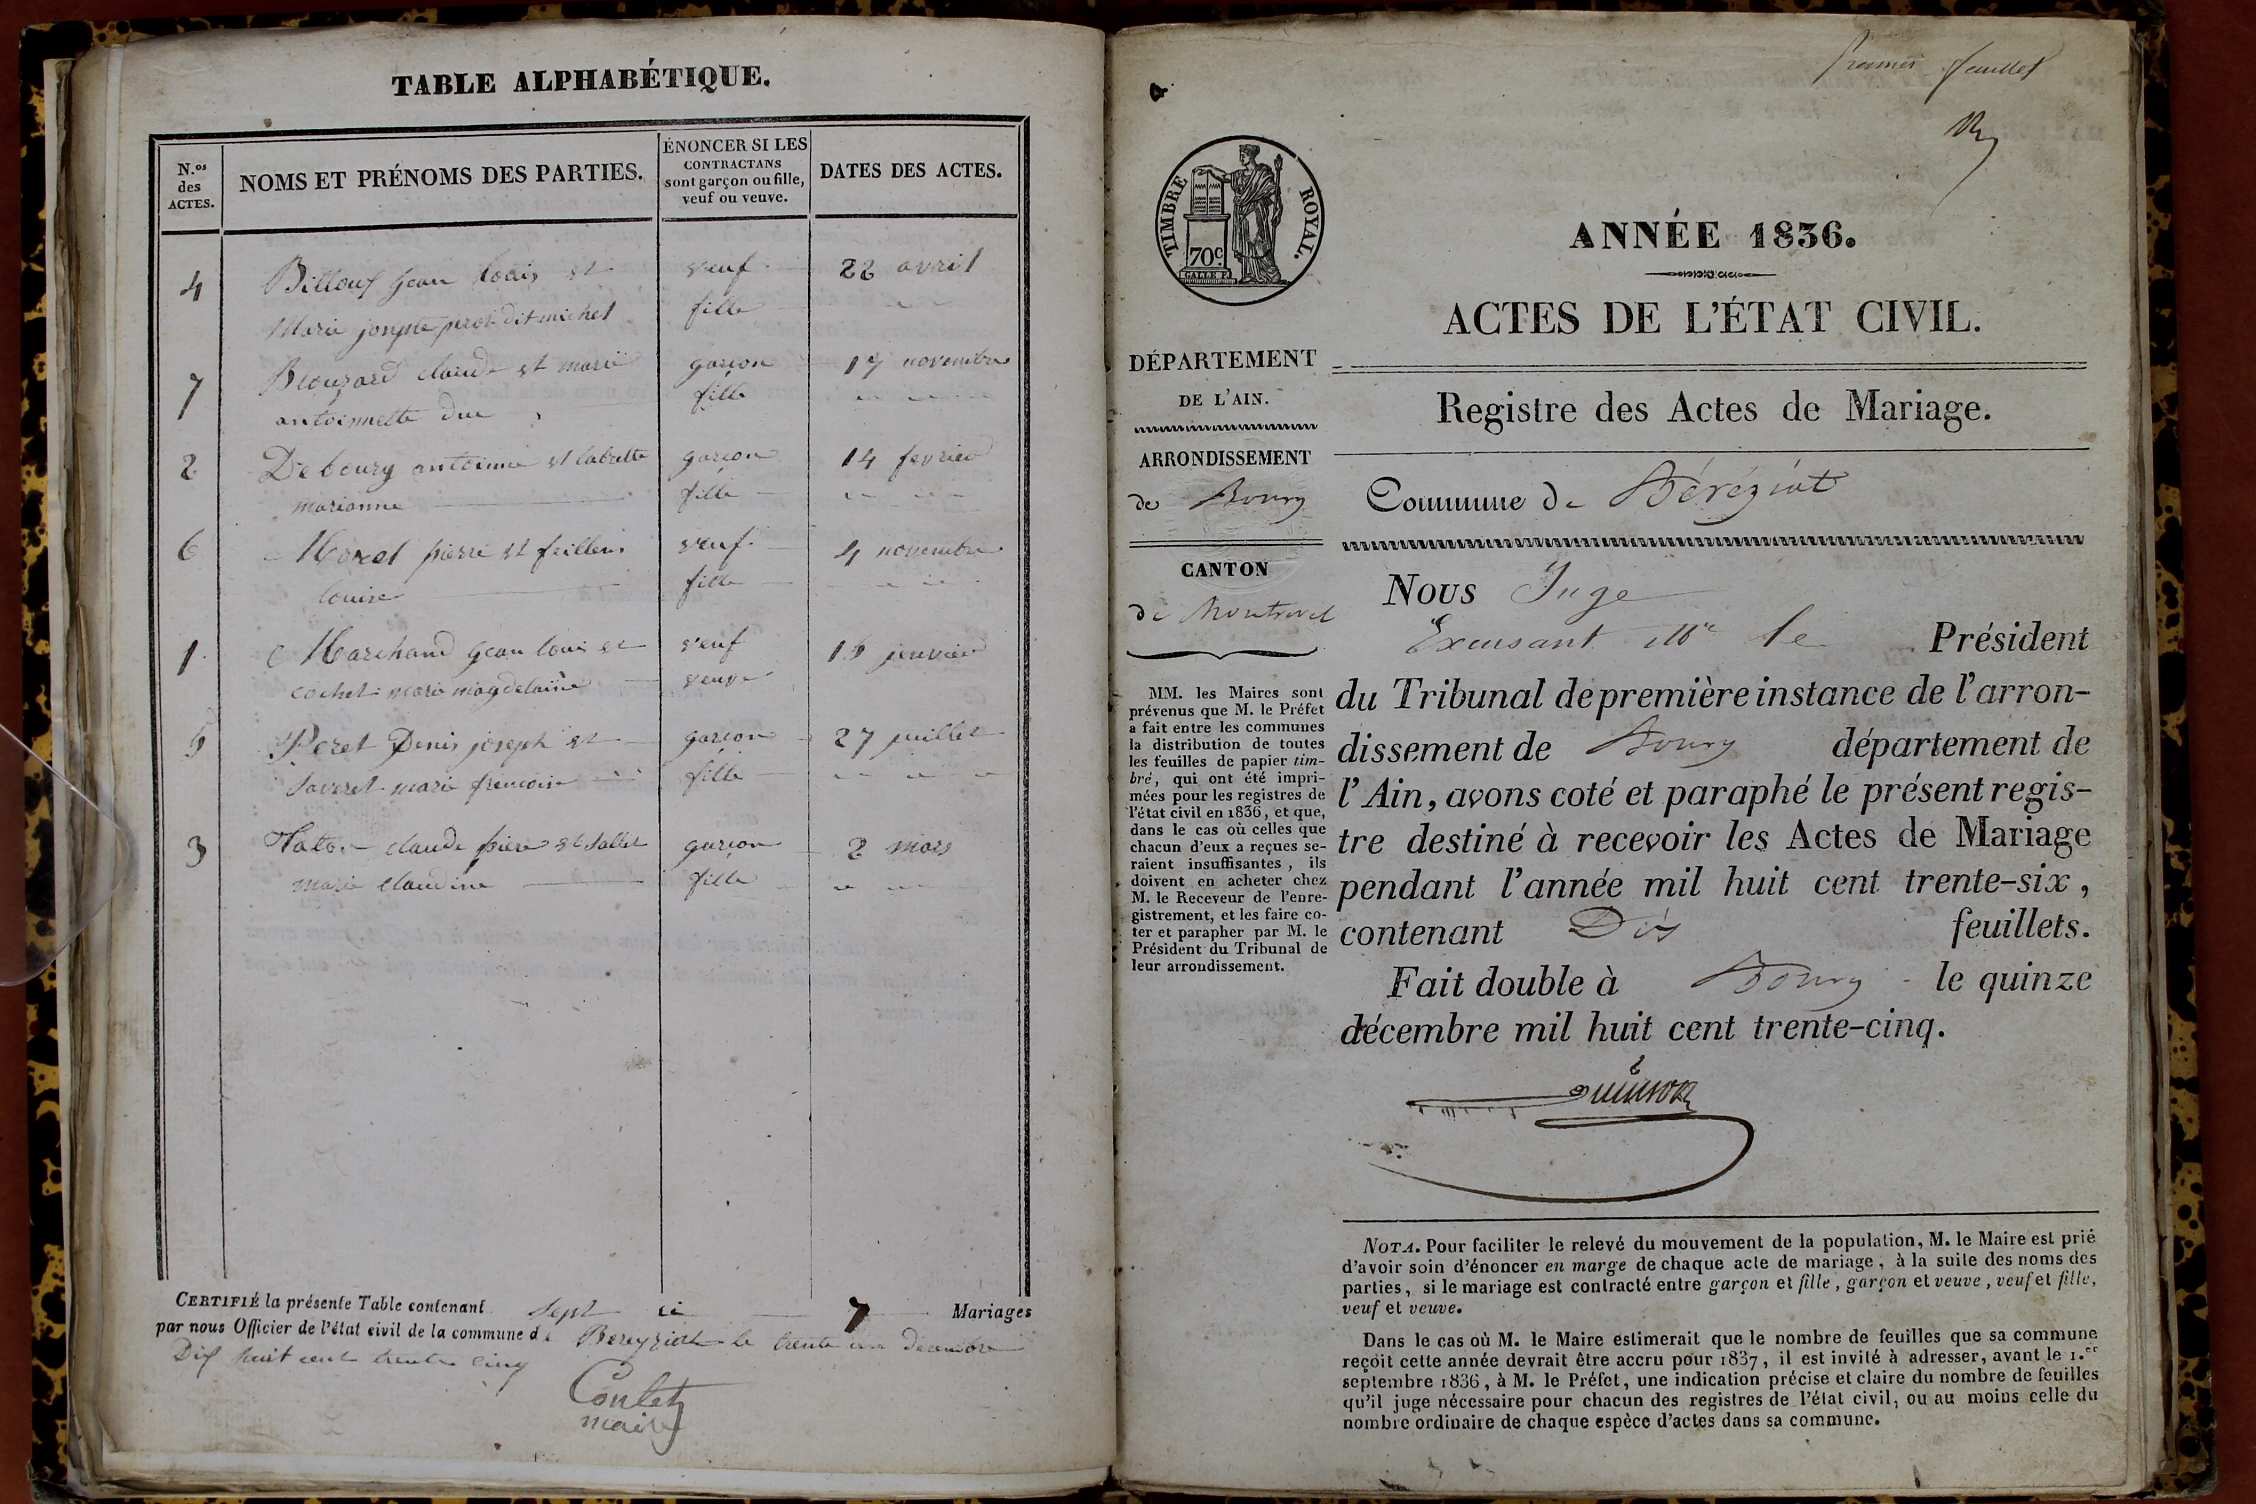 TABLE ALPHABÉTIQUE.
N.os des ACTES.
NOMS ET PRÉNOMS DES PARTIES.
ÉNONCER SI LES
CONTRACTANS
sont garçon ou fille,
veuf ou veuve.
DATES DES ACTES.
4 Jean Louis et veuf 22 avril
Marie dit michel fille
7 Brouzard claude et marie garçon 17 novembre
antoinnette duc fille
2 Debourg antoinne et labrette garçon 14 fevrier
marianne fille
6 Morel pierre et feillens veuf 4 novembre
louise fille
1 Marchand Jean louis et veuf janvier
cochet marie magdelaine veuve
5 Peret Denis joseph et garcon 27 juillet
marie francoise fille
3 claude piere et garcon 2 mars
marie claudine fille
CERTIFIÉ la présente Table contenant sept ci 7 Mariages
par nous Officier de l'état civil de la commune de Bereyziat le trente un decembre
Dix huit cent trente cinq
Contet
maire
Premier feuillet
TIMBRE ROYAL.
70c.
GALLE F.
ANNÉE 1836.
ACTES DE L'ÉTAT CIVIL.
Registre des Actes de Mariage.
DÉPARTEMENT
DE L'AIN.
ARRONDISSEMENT
de Bourg
CANTON
de Montrevel
MM. les Maires sont
prévenus que M. le Préfet
a fait entre les communes
la distribution de toutes
les feuilles de papier tim-
bré, qui ont été impri-
mées pour les registres de
l'état civil en 1836, et que,
dans le cas où celles que
chacun d'eux a reçues se-
raient insuffisantes, ils
doivent en acheter chez
M. le Receveur de l'enre-
gistrement, et les faire co-
ter et parapher par M. le
Président du Tribunal de
leur arrondissement.
Commune de Béréziat
Nous Juge
Excusant Mr le Président
du Tribunal de première instance de l'arron-
dissement de Bourg département de
l'Ain, avons coté et paraphé le présent regis-
tre destiné à recevoir les Actes de Mariage
pendant l'année mil huit cent trente-six,
contenant Dix feuillets.
Fait double à Bourg le quinze
décembre mil huit cent trente-cinq.
NOTA. Pour faciliter le relevé du mouvement de la population, M. le Maire est prié
d'avoir soin d'énoncer en marge de chaque acte de mariage, à la suite des noms des
parties, si le mariage est contracté entre garçon et fille, garçon et veuve, veuf et fille,
veuf et veuve.
Dans le cas où M. le Maire estimerait que le nombre de feuilles que sa commune
reçoit cette année devrait être accru pour 1837, il est invité à adresser, avant le 1.er
septembre 1836, à M. le Préfet, une indication précise et claire du nombre de feuilles
qu'il juge nécessaire pour chacun des registres de l'état civil, ou au moins celle du
nombre ordinaire de chaque espèce d'actes dans sa commune.